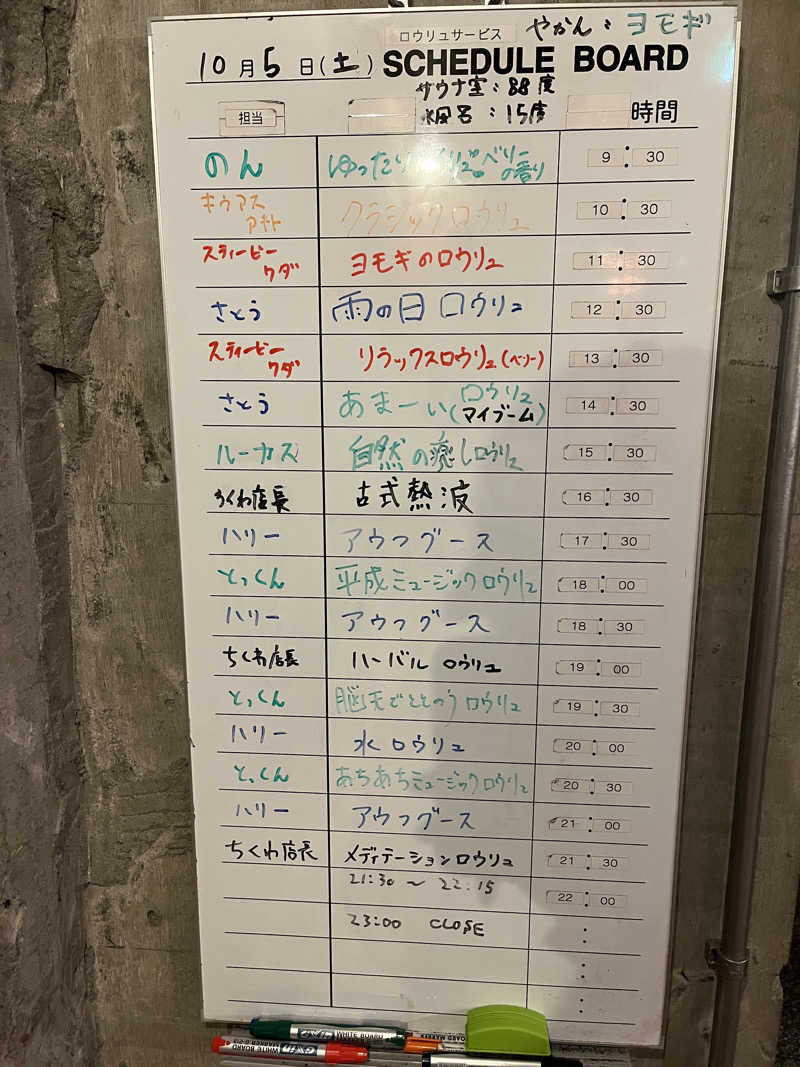 ロウリュサービス やかん：ヨモギ
10月5日(土) SCHEDULE BOARD
サウナ室：88度
担当 水風呂：15度 時間
のん ゆったり ベリーの香り 9：30
キウアス アキト クラシックロウリュ 10：30
スティービー ワダ ヨモギのロウリュ 11：30
さとう 雨の日ロウリュ 12：30
スティービー ワダ リラックスロウリュ(ベリー) 13：30
さとう あまーいロウリュ(マイブーム) 14：30
ルーカス 自然の癒しロウリュ 15：30
ちくわ店長 古式熱波 16：30
ハリー アウフグース 17：30
とっくん 平成ミュージックロウリュ 18：00
ハリー アウフグース 18：30
ちくわ店長 ハーバルロウリュ 19：00
とっくん 脳天でととのうロウリュ 19：30
ハリー 水ロウリュ 20：00
とっくん あちあちミュージックロウリュ 20：30
ハリー アウフグース 21：00
ちくわ店長 メディテーションロウリュ 21：30
21:30〜22:15 22：00
23:00 CLOSE
WHITE BOARD
BOARD MARKER
WHITE BOARD
MARKER